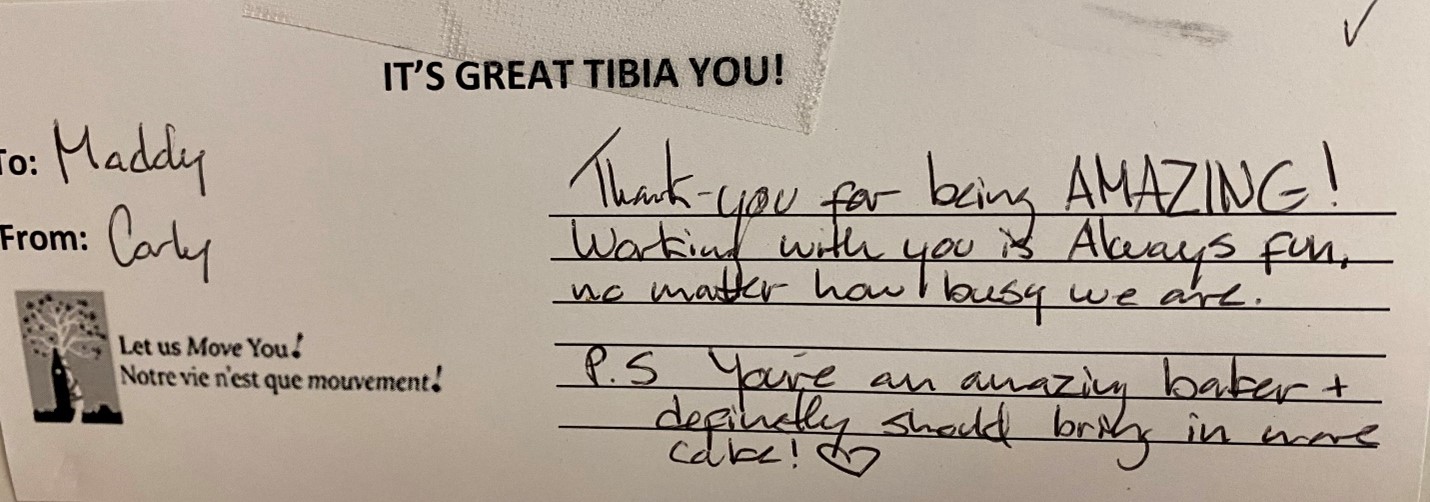 IT'S GREAT TIBIA YOU!
To: Maddy
From: Carly
Let us Move You!
Notre vie n'est que mouvement!
Thank-you for being AMAZING!
Working with you is Always fun,
no matter how busy we are.
P.S You're an amazing baker +
definetly should bring in more
cake! ♡